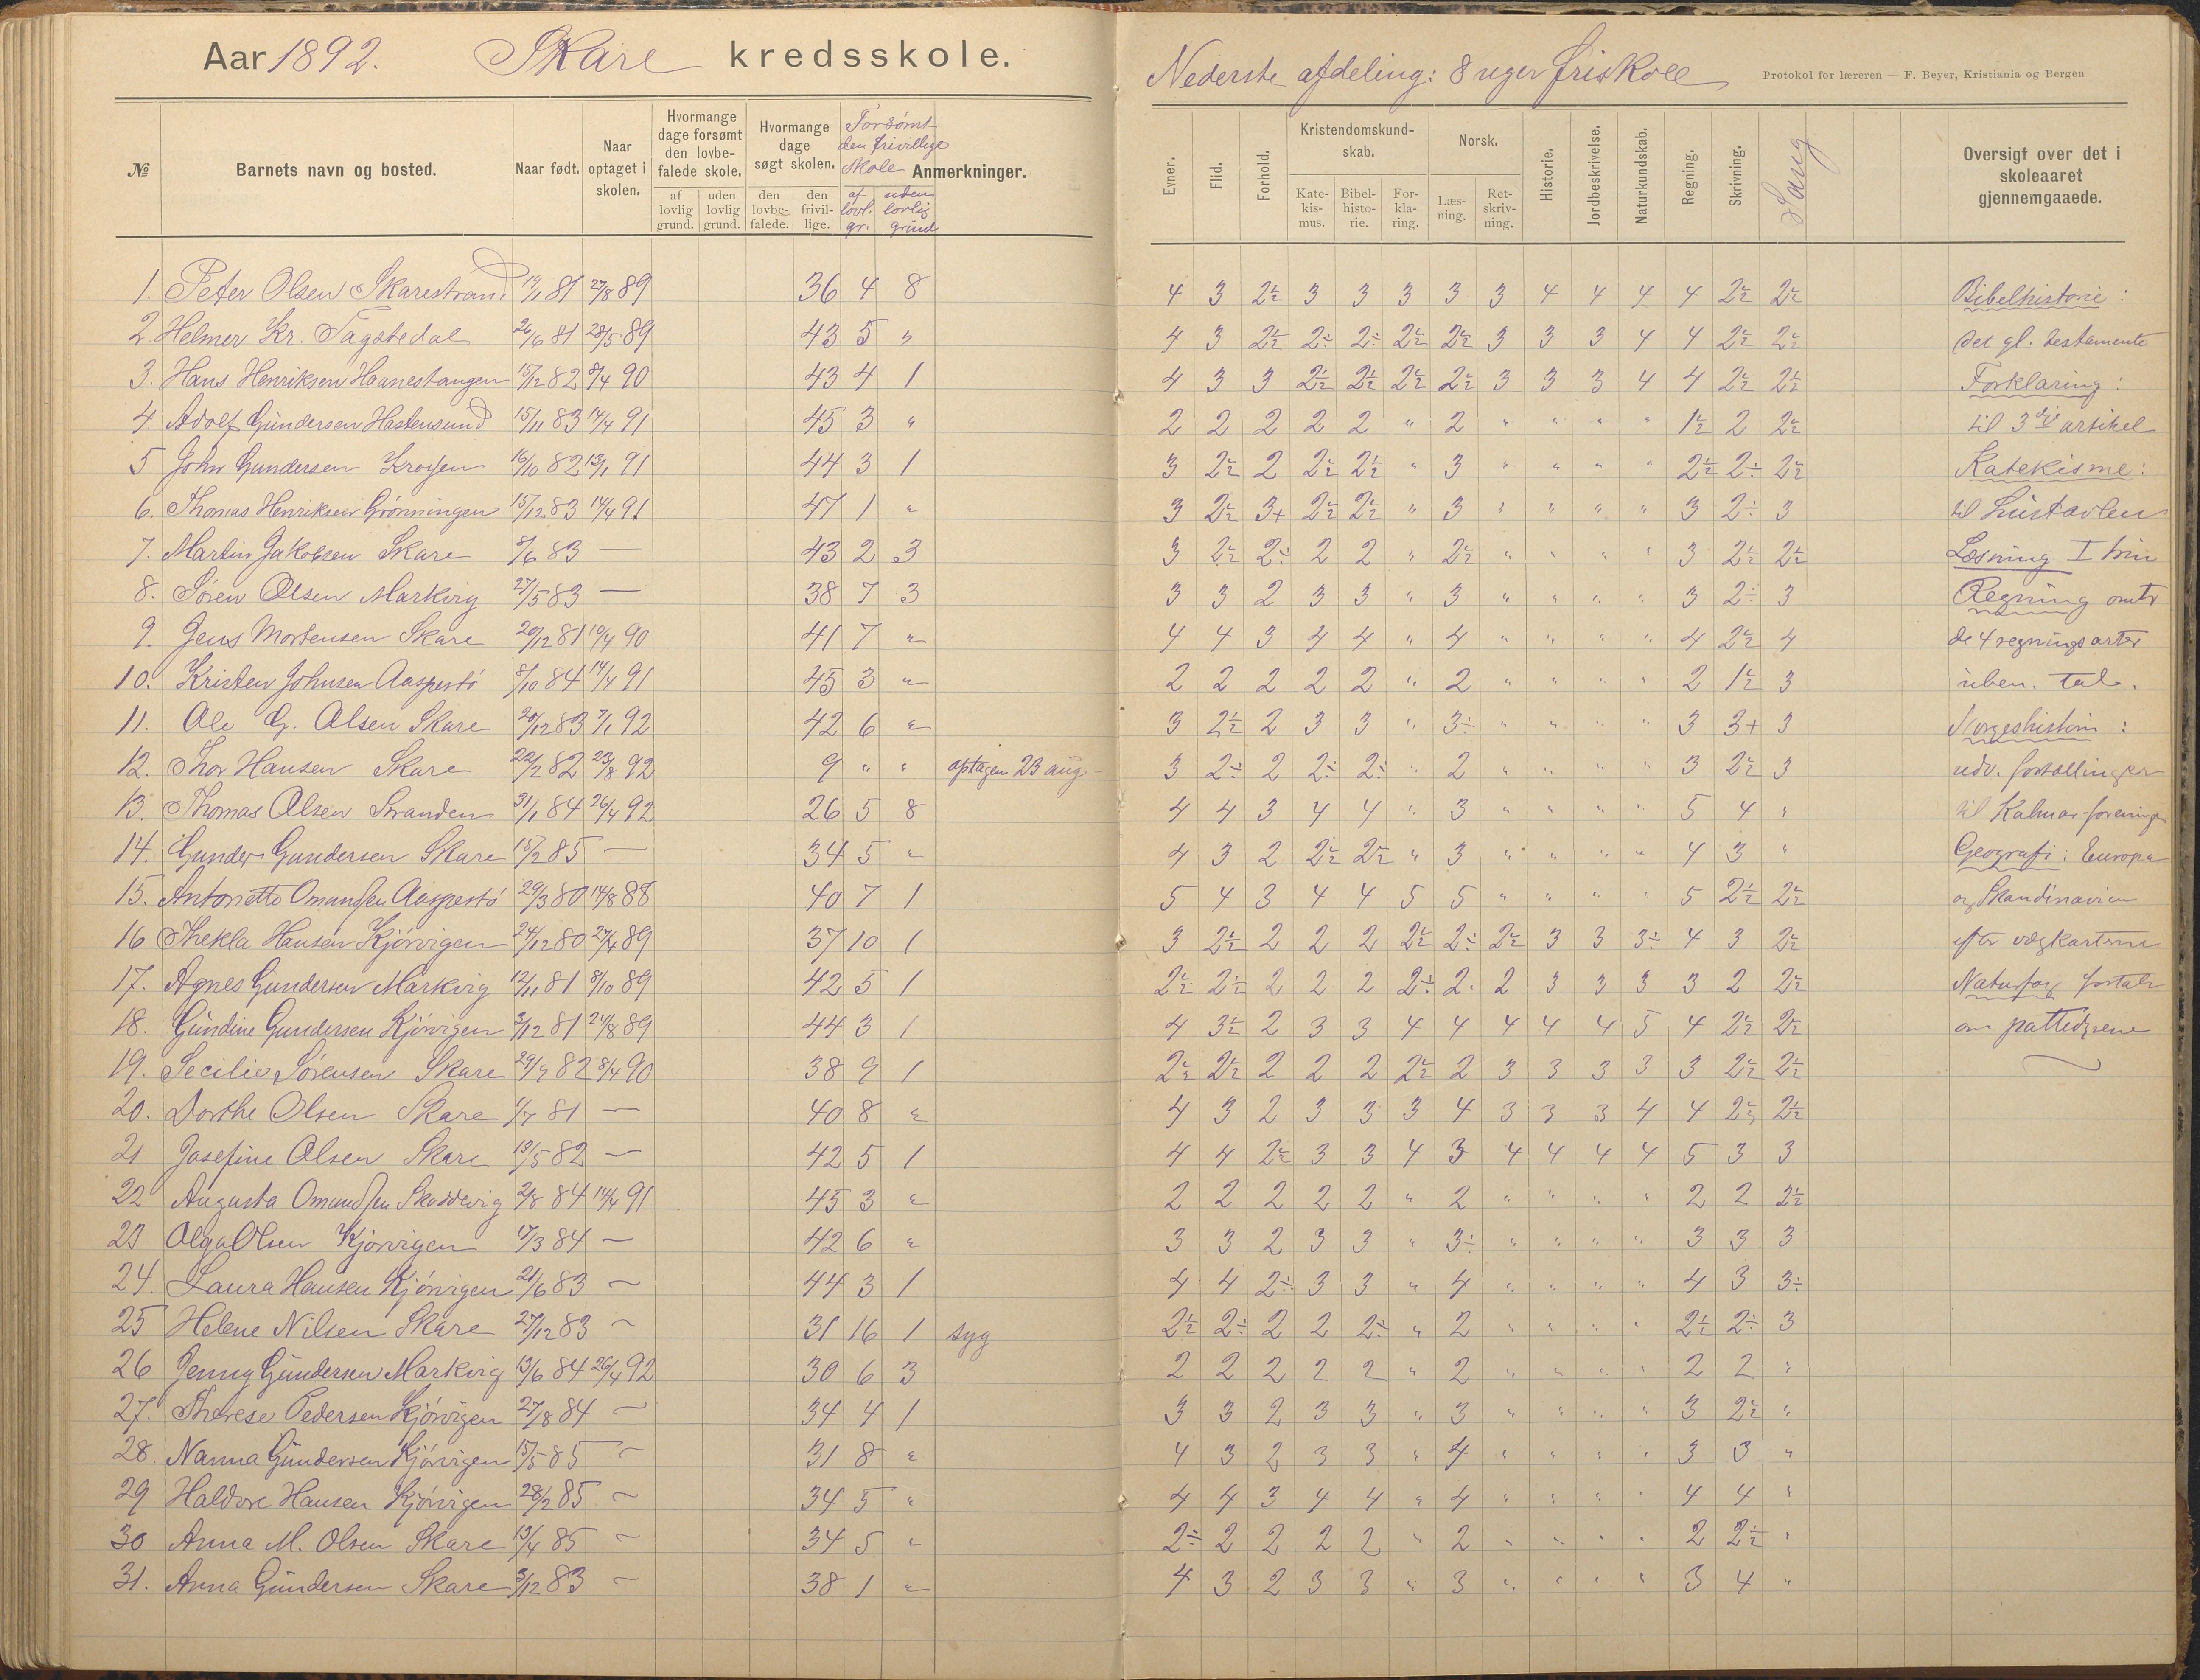 Aar 1892. Skare kredsskole.
Nederste afdeling: 8 uger friskole
Protokol for læreren — F. Beyer, Kristiania og Bergen
№ Barnets navn og bosted. Naar født. Naar optaget i skolen. Hvormange dage forsømt den lovbefalede skole. af lovlig grund. uden lovlig grund. Hvormange dage søgt skolen. den lovbefalede. den frivillige. Forsømt den frivillige skole af lovl. gr. uden lovlig grund Anmerkninger.
Evner. Flid. Forhold. Kristendomskundskab. Katekismus. Bibelhistorie. Forklaring. Norsk. Læsning. Retskrivning. Historie. Jordbeskrivelse. Naturkundskab. Regning. Skrivning. Sang Oversigt over det i skoleaaret gjennemgaaede.
1. Peter Olsen Skarestrand 19/1 81 27/8 89 36 4 8 4 3 2½ 3 3 3 3 3 4 4 4 4 2½ 2½ Bibelhistorie:
2. Helmer Kr. Tagstedal 26/6 81 28/5 89 43 5 " 4 3 2½ 2÷ 2÷ 2½ 2½ 3 3 3 4 4 2½ 2½ det gl. testamente
3. Hans Henriksen Haanestangen 15/12 82 8/4 90 43 4 1 4 3 3 2½ 2½ 2½ 2½ 3 3 3 4 4 2½ 2½ Forklaring:
4. Adolf Gundersen Hastensund 15/11 83 14/4 91 45 3 " 2 2 2 2 2 " 2 " " " " 1½ 2 2½ til 3die artikel
5 John Gundersen Krogen 16/10 82 13/1 91 44 3 1 3 2½ 2 2½ 2½ " 3 " " " " 2½ 2÷ 2½ Katekisme:
6. Thomas Henriksen Grønningen 15/12 83 14/4 91 47 1 " 3 2½ 3+ 2½ 2½ " 3 " " " " 3 2÷ 3 til Hustavlen
7. Martin Jakobsen Skare 8/6 83 — 43 2 3 3 2½ 2÷ 2 2 " 2½ " " " " 3 2½ 2½ Læsning I trin
8. Søren Olsen Markvig 27/5 83 — 38 7 3 3 3 2 3 3 " 3 " " " " 3 2÷ 3 Regning omtr
9. Jens Mortensen Skare 20/12 81 19/4 90 41 7 " 4 4 3 4 4 " 4 " " " " 4 2½ 4 de 4 regningsarter
10. Kristen Johnsen Aaspestø 8/10 84 14/4 91 45 3 " 2 2 2 2 2 " 2 " " " " 2 1½ 3 uben. tal.
11. Ole G. Olsen Skare 20/12 83 7/1 92 42 6 " 3 2½ 2 3 3 " 3÷ " " " " 3 3+ 3 Norgeshistorie:
12. Thor Hansen Skare 22/2 82 23/8 92 9 " " optagen 23 aug. 3 2÷ 2 2÷ 2÷ " 2 " " " " 3 2½ 3 udv. fortællinger
13. Thomas Olsen Stranden 31/1 84 26/4 92 26 5 8 4 4 3 4 4 " 3 " " " " 5 4 " til Kalmar-foreningen
14. Gunder Gundersen Skare 15/2 85 — 34 5 " 4 3 2 2½ 2½ " 3 " " " " 4 3 " Geografi: Europa
15. Antonette Omundsen Aaspestø 29/3 80 14/8 88 40 7 1 5 4 3 4 4 5 5 " " " " 5 2½ 2½ og Skandinavien
16 Thekla Hansen Kjørvigen 24/12 80 27/4 89 37 10 1 3 2½ 2 2 2 2½ 2÷ 2½ 3 3 3÷ 4 3 2½ efter vægkarterne
17. Agnes Gundersen Markvig 12/11 81 8/10 89 42 5 1 2½ 2½ 2 2 2 2÷ 2 2 3 3 3 3 2 2½ Naturfag fortalt
18. Gundine Gundersen Kjørvigen 3/12 81 24/8 89 44 3 1 4 3½ 2 3 3 4 4 4 4 4 5 4 2½ 2½ om pattedyrene
19. Secilie Sørensen Skare 29/7 82 8/4 90 38 9 1 2½ 2½ 2 2 2 2½ 2 3 3 3 3 3 2½ 2½
20. Dorthe Olsen Skare 1/7 81 — 40 8 " 4 3 2 3 3 3 4 3 3 3 4 4 2½ 2½
21 Josefine Olsen Skare 19/5 82 — 42 5 1 4 4 2½ 3 3 4 3 4 4 4 4 5 3 3
22 Augusta Omundsen Skoddevig 2/8 84 14/4 91 45 3 " 2 2 2 2 2 " 2 " " " " 2 2 2½
23 Olga Olsen Kjørvigen 17/3 84 — 42 6 " 3 3 2 3 3 " 3÷ " " " " 3 3 3
24. Laura Hansen Kjørvigen 21/6 83 — 44 3 1 4 4 2÷ 3 3 " 4 " " " " 4 3 3÷
25 Helene Nilsen Skare 27/12 83 — 31 16 1 syg 2½ 2÷ 2 2 2÷ " 2 " " " " 2½ 2÷ 3
26 Jenny Gundersen Markvig 13/6 84 26/4 92 30 6 3 2 2 2 2 2 " 2 " " " " 2 2 "
27. Therese Pedersen Kjørvigen 27/8 84 — 34 4 1 3 3 2 3 3 " 3 " " " " 3 2½ "
28. Nanna Gundersen Kjørvigen 15/5 85 — 31 8 " 4 3 2 3 3 " 4 " " " " 3 3 "
29 Haldore Hansen Kjørvigen 28/2 85 — 34 5 " 4 4 3 4 4 " 4 " " " " 4 4 "
30 Anna M. Olsen Skare 13/4 85 — 34 5 " 2÷ 2 2 2 2 " 2 " " " " 2 2½ "
31. Anna Gundersen Skare 3/12 83 — 38 1 " 4 3 2 3 3 " 3 " " " " 3 4 "